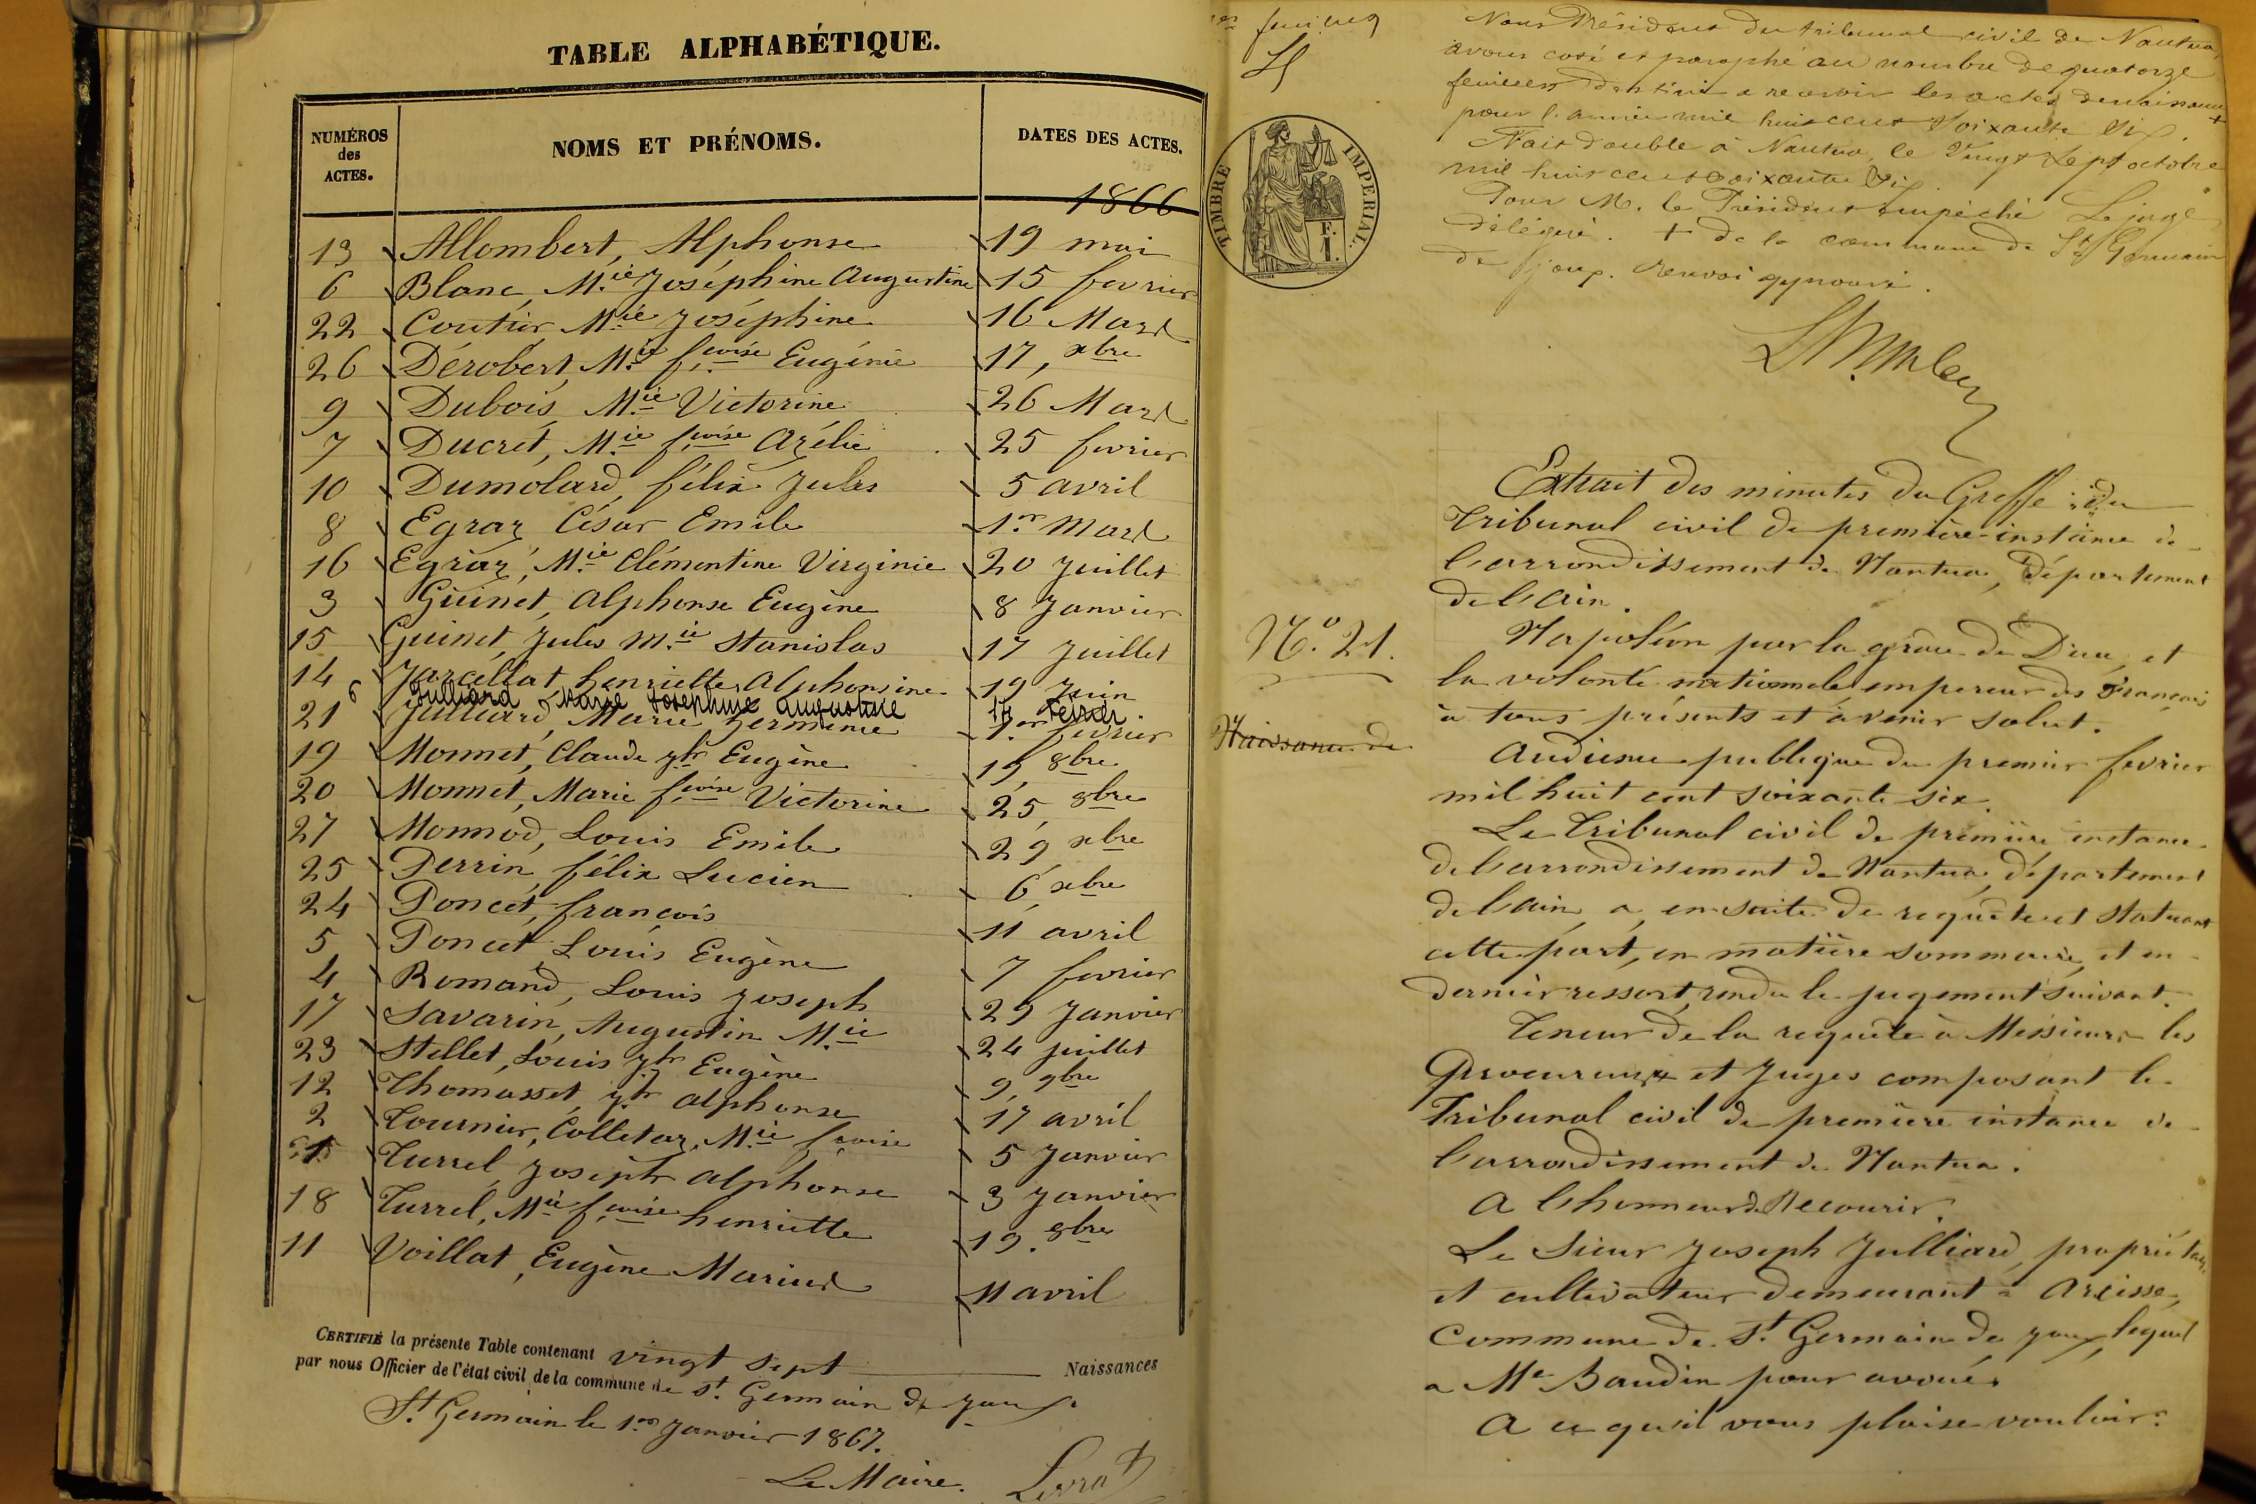 TABLE ALPHABÉTIQUE.
NUMÉROS des ACTES.
NOMS ET PRÉNOMS.
DATES DES ACTES.
1866
13 Allombert, Alphonse 19 mai
6 Blanc, M.ie Joséphine Augustine 15 fevrier
22 Coutier M.ie Joséphine 16 Mars
26 Dérobert, M.ie f.çoise Eugénie 17, xbre
9 Dubois, M.ie Victorine 26 Mars
7 Ducret, M.ie f.çoise Azélie 25 fevrier
10 Dumolard, félix Jules 5 avril
8 Egraz César Emile 1.er Mars
16 Egraz, M.ie Clémentine Virginie 20 Juillet
3 Guinet, Alphonse Eugène 8 Janvier
15 Guinet, Jules M.ie Stanislas 17 Juillet
14 Jarcellat henriette Alphonsine 19 Juin
6 Julliard Marie Josephine augustine 14 Fevrier
21 Julliard, Marie herminie 1.er fevrier
19 Monnet, Claude jh Eugène 19, 8bre
20 Monnet, Marie f.çoise Victorine 25, 8bre
27 Monnod, Louis Emile 29, xbre
25 Perrin félix Lucien 6, xbre
24 Poncet, françois 11 avril
5 Poncet Louis Eugène 7 fevrier
4 Romand, Louis Joseph 29 Janvier
17 Savarin, Augustin M.ie 24 juillet
23 Stellet, Louis jh Eugène 9, 9bre
12 Thomasset, jh alphonse 17 avril
2 Tournier, Colletaz, M.ie f çoise 5 Janvier
1 Turrel Joseph alphonse 3 Janvier
18 Turrel, M.ie f.çoise henriette 19. 8bre
11 Voillat, Eugène Marius 11 avril
CERTIFIÉ la présente Table contenant vingt sept Naissances
par nous Officier de l'état civil de la commune de St. Germain de Joux.
St. Germain le 1.er Janvier 1867.
Le Maire. Levrat
Nous Président du tribunal civil de Nantua,
avons coté et paraphé au nombre de quatorze
feuillets destiné a recevoir les actes de naissance +
pour l'année mil huit cent soixante six.
Fait double à Nantua, le Vingt sept octobre
mil huit cent soixante six.
Pour M. le Président empêché Le juge
délégué. + de la commune de St Germain
de Joux. Renvoi approuvé.
TIMBRE IMPERIAL.
E. I.
Extrait des minutes du Greffe du
Tribunal civil de première instance de
l'arrondissement de Nantua, Département
de l'Ain.
N.o 21.
Naissance de
Napoléon par la grâce de Dieu, et
la volonté nationale empereur des Français
à tous présents et à venir salut.
Audience publique du premier fevrier
mil huit cent soixante six.
Le Tribunal civil de première instance
de l'arrondissement de Nantua, département
de l'ain, a, en suite de requête et statuant
cette part, en matière sommaire, et en
dernier ressort, rendu le jugement suivant.
Teneur de la requête à Messieurs les
Procureurs et Juges composant le
Tribunal civil de première instance de
l'arrondissement de Nantua.
A l'honneur de Recourir.
Le Sieur Joseph Julliard, propriétaire
et cultivateur demeurant à
Commune de St. Germain de joux, lequel
a Me Baudin pour avoué.
A ce qu'il vous plaise vouloir: